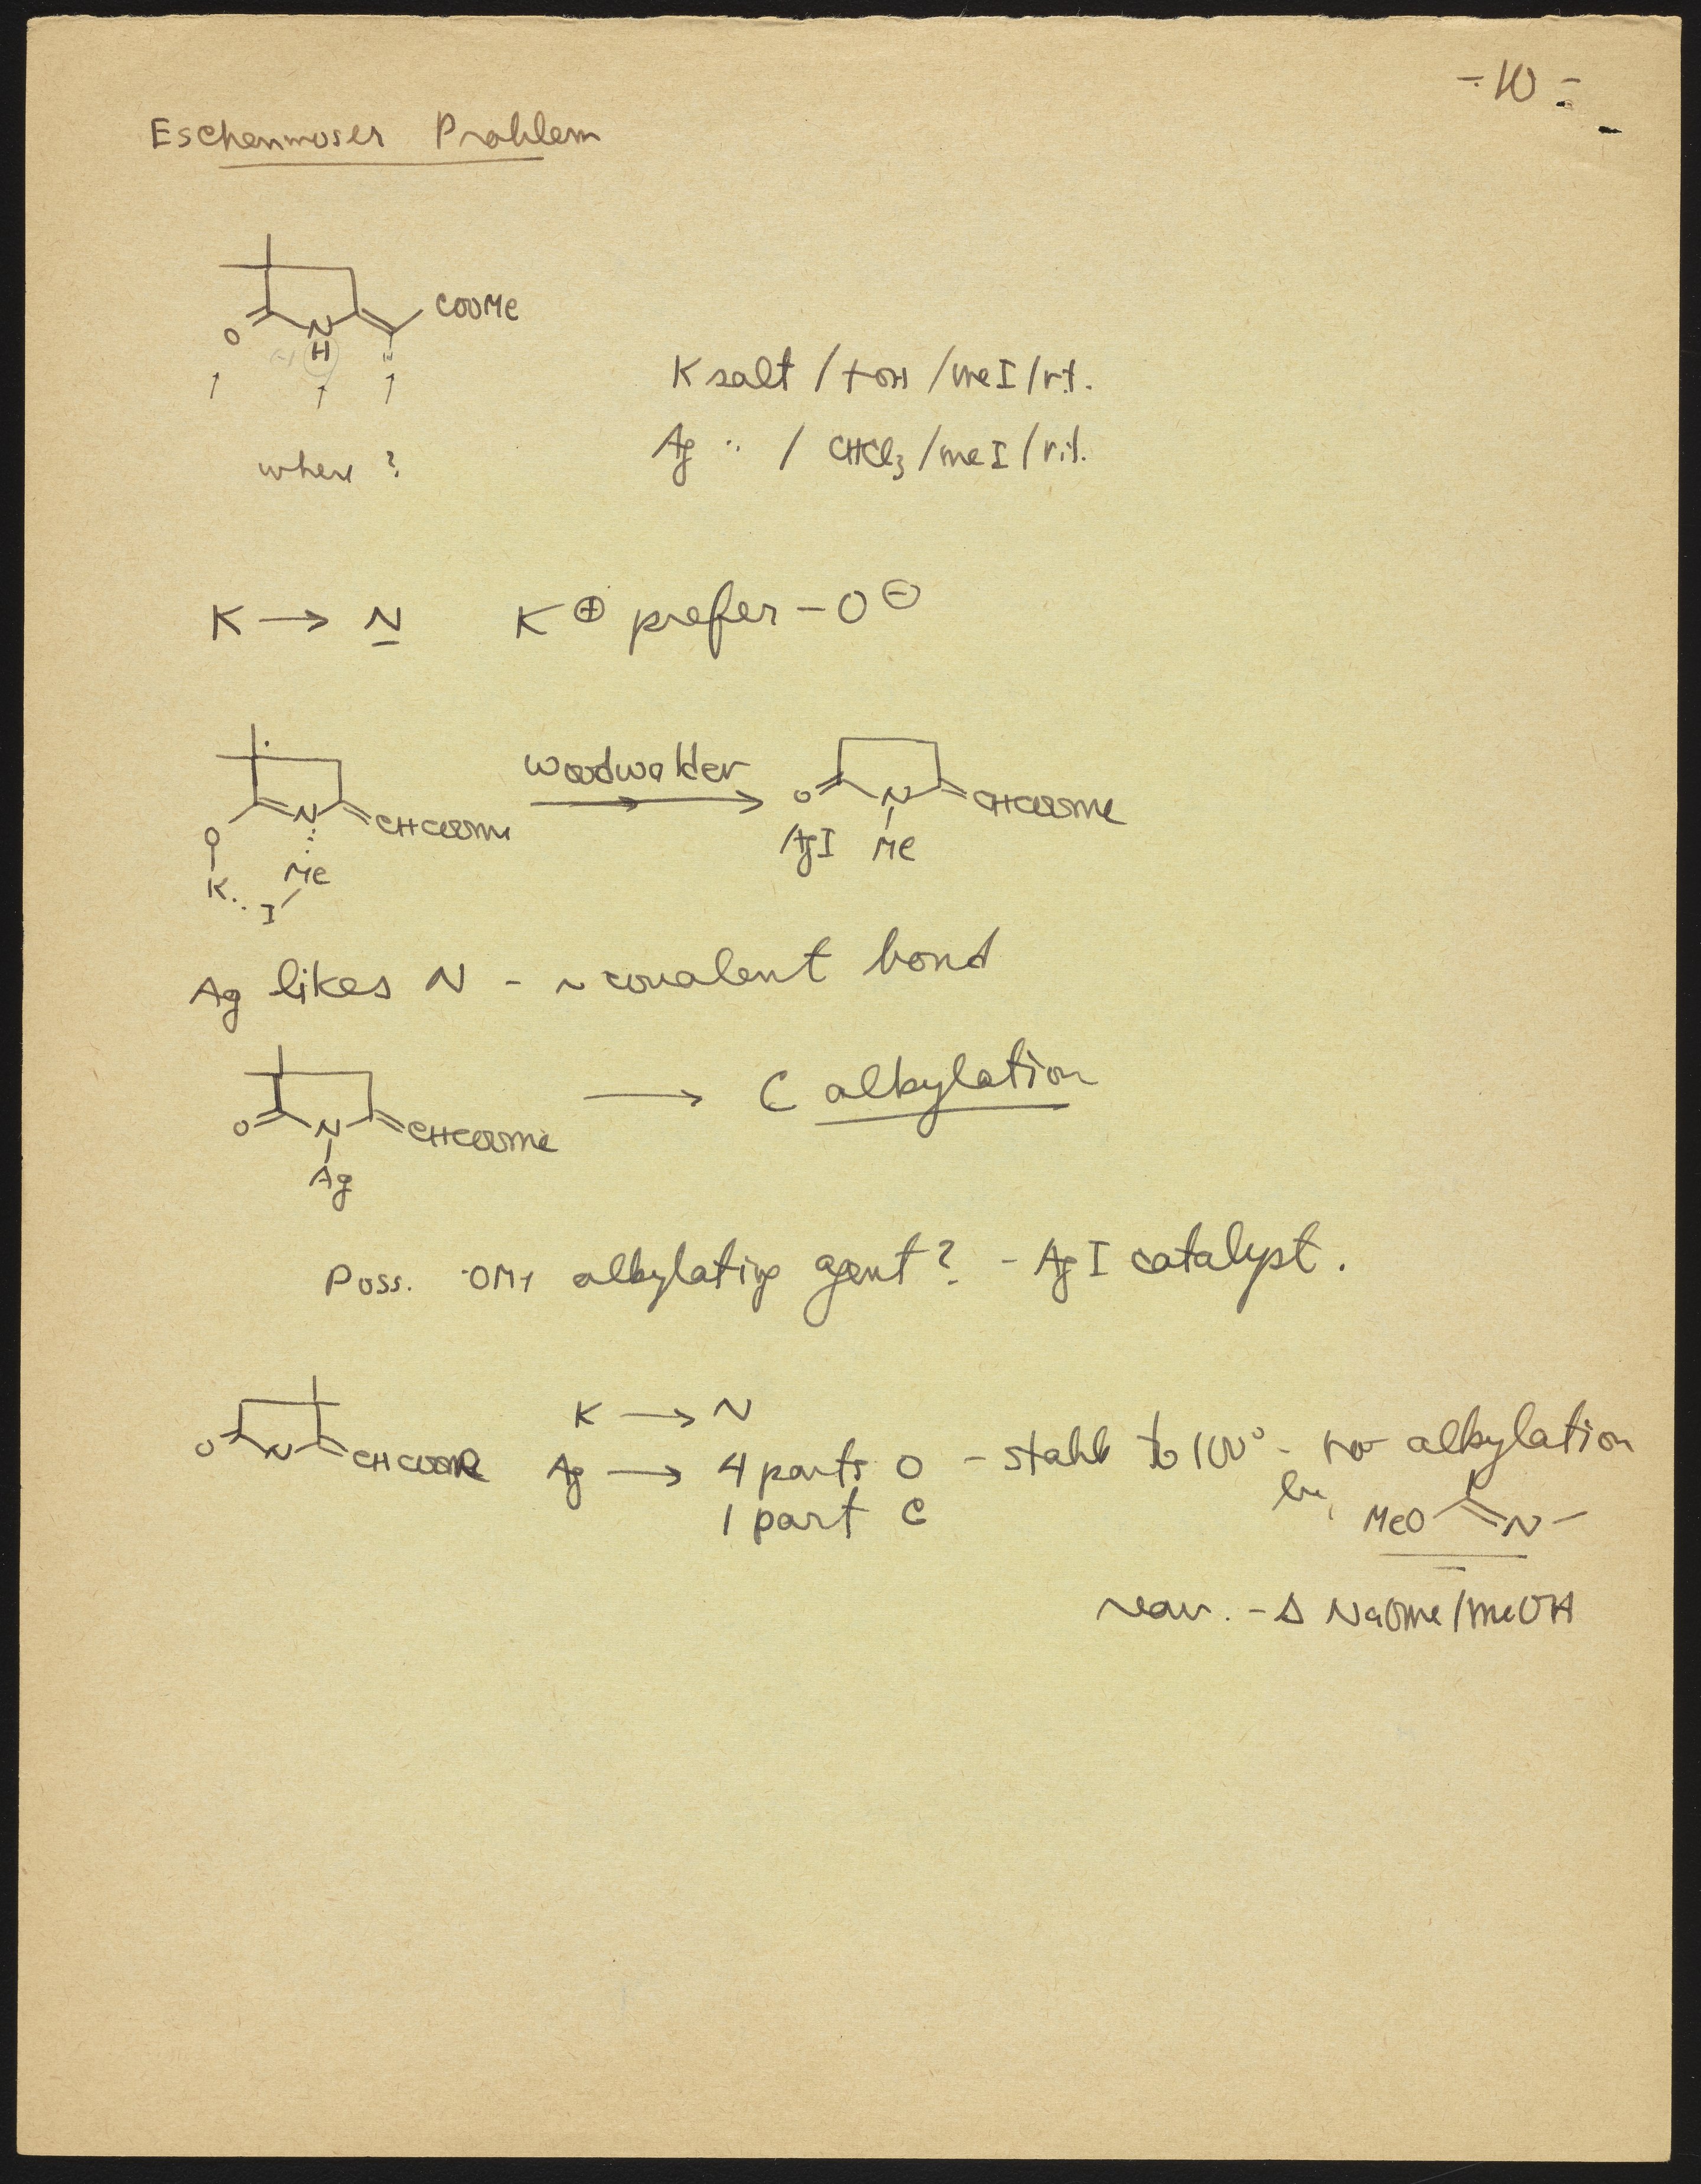 -10-
Eschenmoser Problem
COOMe
O N
H
where ?
K salt / + OH / MeI / r.t.
Ag " / CHCl3 / MeI / r.t.
K → N K⊕ prefer -O⊖
N CHCOOMe
O
K Me
I
O N CHCOOMe
AgI Me
Ag likes N - ~ covalent bond
O N CHCOOMe
Ag
→ C alkylation
Poss. OMe alkylating agent? - AgI catalyst.
O N CHCOOR
K → N
Ag → 4 parts O - stable to 100° - no alkylation
1 part C
by
MeO N
rearr. - Δ NaOMe/MeOH